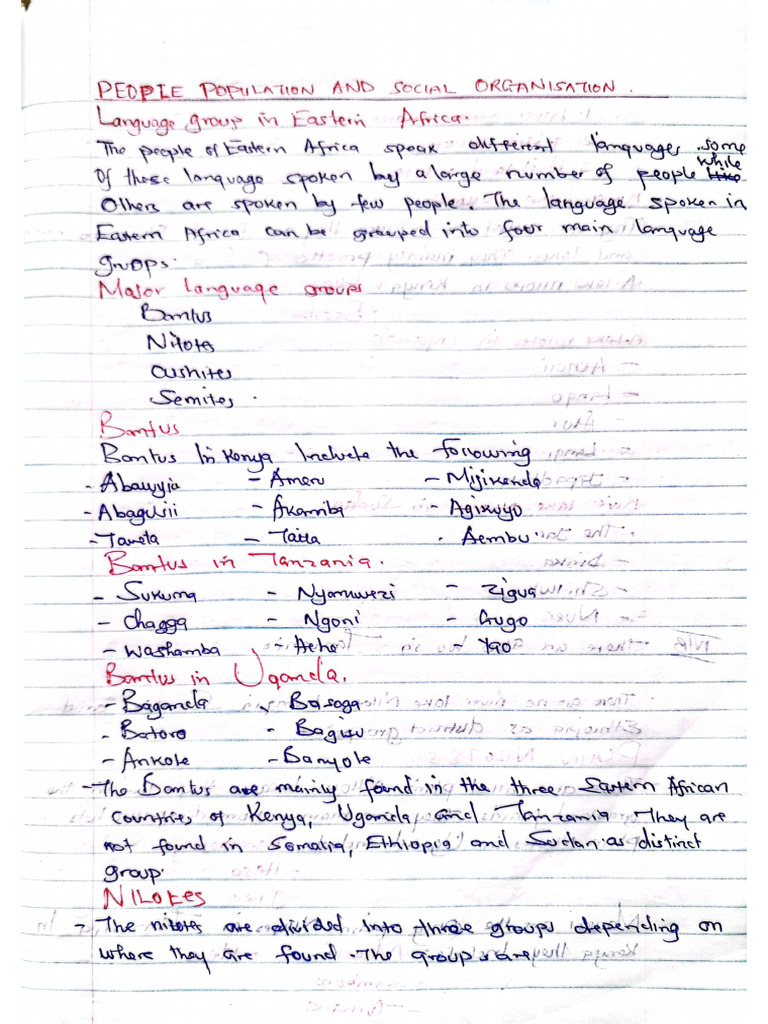 PEOPLE POPULATION AND SOCIAL ORGANISATION.
Language group in Eastern Africa.
The people of Eastern Africa speak different languages. some
Of these language spoken by a large number of people while
Others are spoken by few people. The language spoken in
Eastern Africa can be grouped into four main language
gruops.
Major language groups
Bantus
Nilotes
Cushites
Semites.
Bantus
Bantus in Kenya Include the following,
- Abaluyia - Ameru - Mijikenda
- Abagusii - Akamba - Agikuyu
- Taveta - Taita . Aembu
Bantus in Tanzania.
- Sukuma - Nyamwezi - Zigua
- Chagga - Ngoni - Gugo
- Washamba - Hehe - Yao
Bantus in Uganda.
- Baganda - Basoga
- Batoro - Bagisu
- Ankole - Banyole
- The Bantus are mainly found in the three Eastern African
countries of Kenya, Uganda and Tanzania. They are
not found in Somalia, Ethiopia and Sudan as distinct
group.
NILOTES
- The nilotes are divided into three groups depending on
where they are found. The groups are